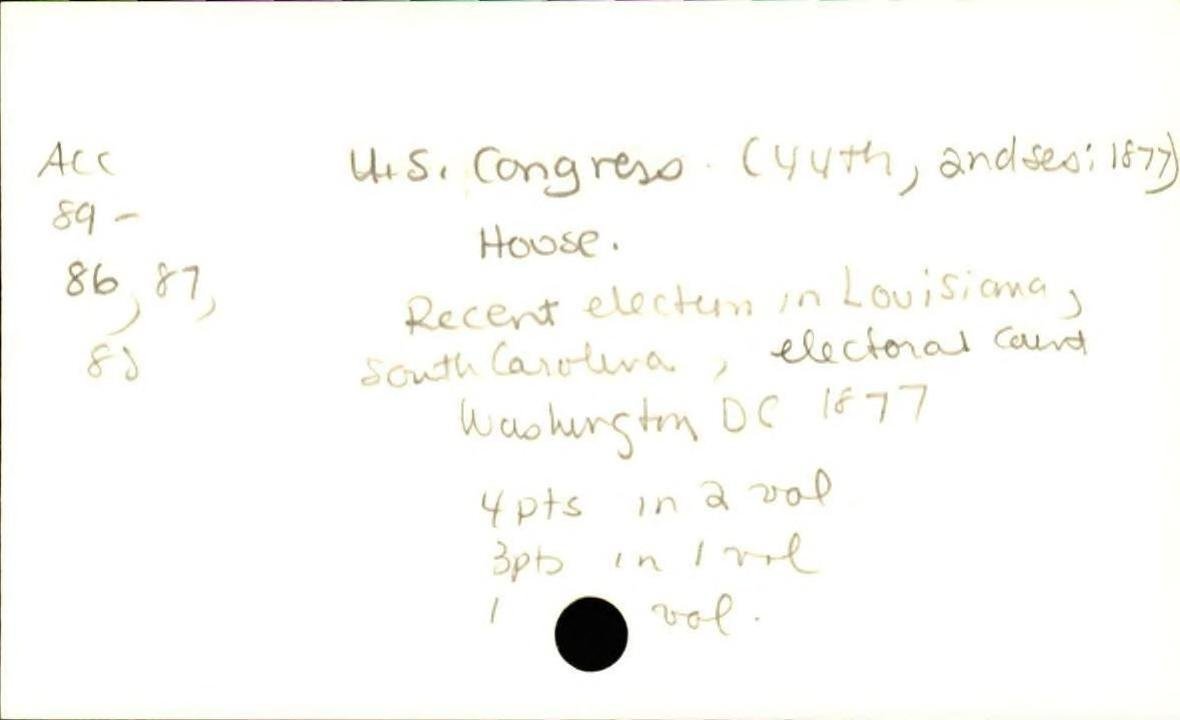 Acc
U.S. Congress. (44th, 2nd ses: 1877)
89 -
House.
86, 87,
Recent election in Louisiana,
88
South Carolina, electoral count
Washington DC 1877
4 pts in 2 vol
3pts in 1 vol
1 vol.